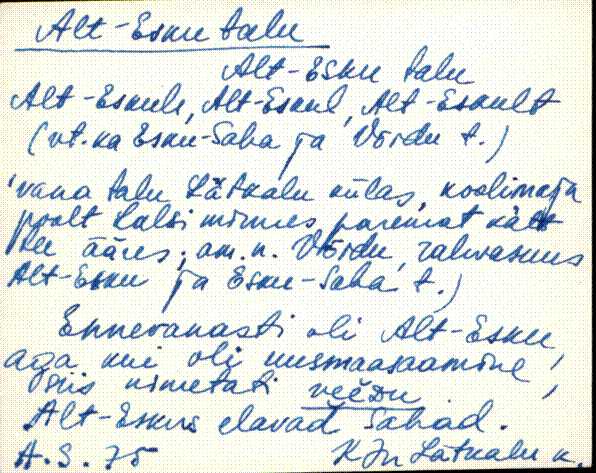 Alt-Esku talu
Alt-Esku talu
Alt-Eskule, Alt-Eskul, Alt-Eskult
(vt. ka Esku-Saba ja Võrdu t.)
'vana talu Lätkalu külas, koolimaja
poolt Halsi minnes paremat kätt
tee ääres; am. n. Võrdu, rahvasuus
Alt-Esku ja Esku-Saba t.)
Ennevanasti oli Alt-Esku,
aga kui oli uusmaasaamine,
siis nimetati
Alt-Eskus elavad Sabad.
A.S. 75 KJn Lätkalu k.